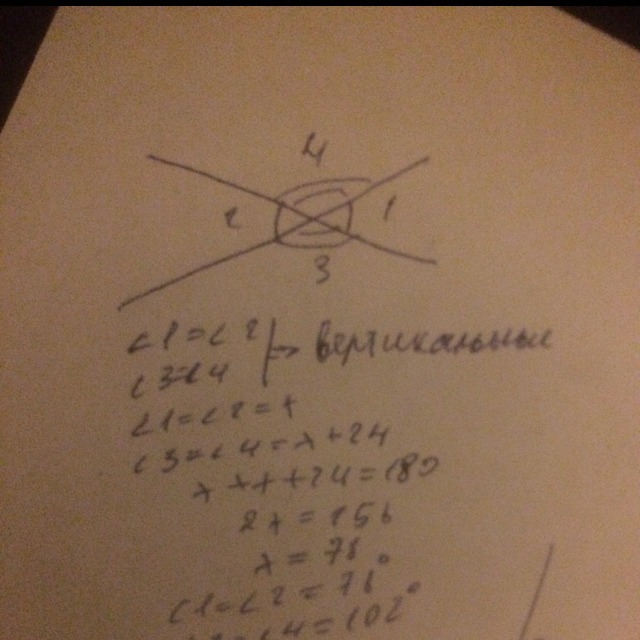 4
2
1
3
∠1=∠2
∠3=∠4
→ вертикальные
∠1=∠2=x
∠3=∠4=x+24
x+x+24=180
2x=156
x=78°
∠1=∠2=78°
∠3=∠4=102°